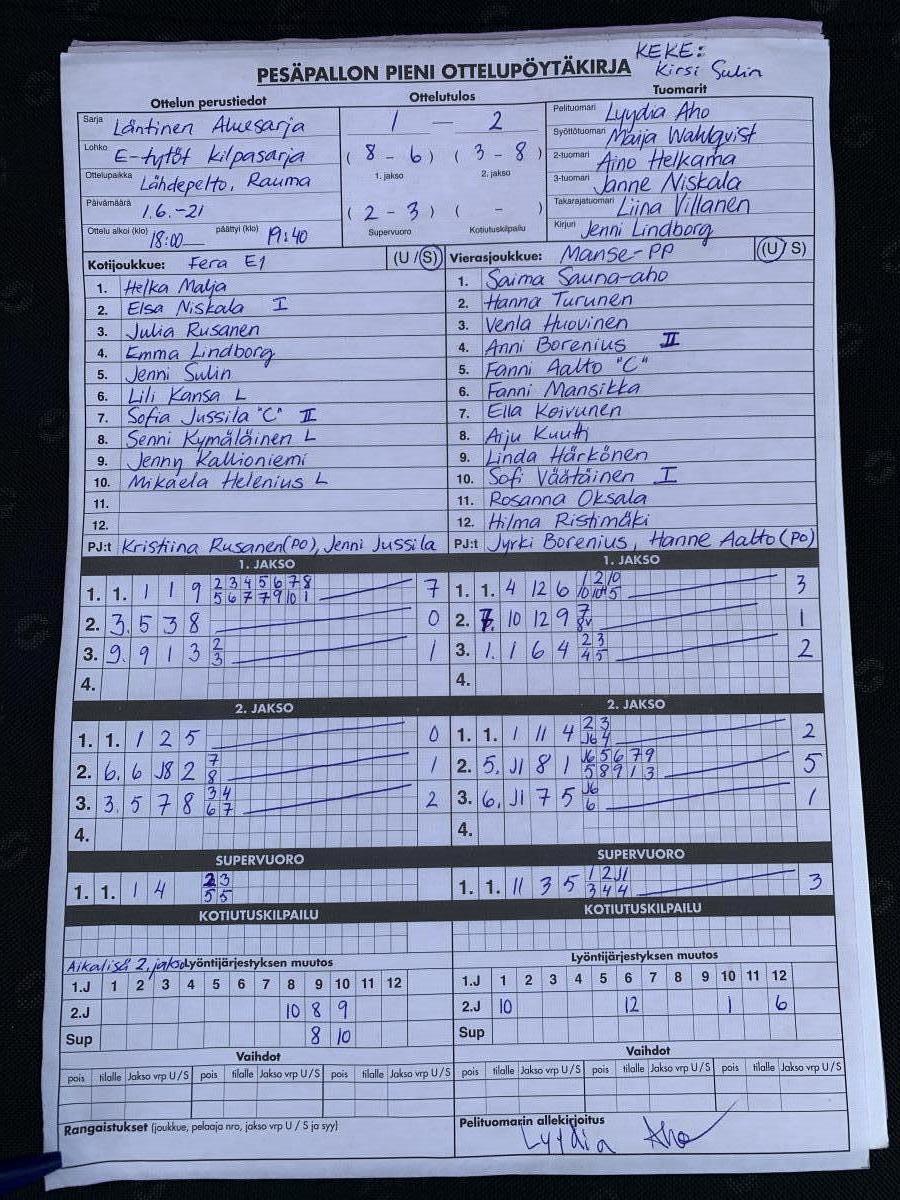 KEKE:
Kirsi Sulin
PESÄPALLON PIENI OTTELUPÖYTÄKIRJA
Ottelun perustiedot
Sarja Läntinen Aluesarja
Lohko E-tytöt kilpasarja
Ottelupaikka Lähdepelto, Rauma
Päivämäärä 1.6.-21
Ottelu alkoi (klo) 18:00 päättyi (klo) 19:40
Ottelutulos
1 - 2
(8 - 6) (3 - 8)
1. jakso 2. jakso
(2 - 3) ( - )
Supervuoro Kotiutuskilpailu
Tuomarit
Pelituomari Lyydia Aho
Syöttötuomari Maija Wahlqvist
2-tuomari Aino Helkama
3-tuomari Janne Niskala
Takarajatuomari Liina Villanen
Kirjuri Jenni Lindborg
Kotijoukkue: Fera E1 (U / S)
1. Helka Malja
2. Elsa Niskala I
3. Julia Rusanen
4. Emma Lindborg
5. Jenni Sulin
6. Lili Kansa L
7. Sofia Jussila "C" II
8. Senni Kymäläinen L
9. Jenny Kallioniemi
10. Mikaela Helenius L
11.
12.
PJ:t Kristiina Rusanen (PO), Jenni Jussila
Vierasjoukkue: Manse-PP (U / S)
1. Saima Sauna-aho
2. Hanna Turunen
3. Venla Huovinen
4. Anni Borenius II
5. Fanni Aalto "C"
6. Fanni Mansikka
7. Ella Koivunen
8. Aiju Kuutti
9. Linda Härkönen
10. Sofi Väätäinen I
11. Rosanna Oksala
12. Hilma Ristimäki
PJ:t Jyrki Borenius, Hanne Aalto (PO)
1. JAKSO
1. 1. 1 1 9 2 3 4 5 6 7 8 7
5 6 7 7 9 10 1
2. 3. 5 3 8 0
3. 9. 9 1 3 2 1
3
4.
1. JAKSO
1. 1. 4 12 6 1 2 10 3
2. 10 12 9 7 1
3. 1. 1 6 4 2 3 2
4 5
4.
2. JAKSO
1. 1. 1 2 5 0
2. 6. 6 J8 2 7 1
8
3. 3. 5 7 8 3 4 2
6 7
4.
2. JAKSO
1. 1. 1 11 4 2 3 2
J6 4
2. 5. J1 8 1 J6 5 6 7 9 5
5 8 9 1 3
3. 6. J1 7 5 J6 1
6
4.
SUPERVUORO
1. 1. 1 4 2 3
5 5
SUPERVUORO
1. 1. 11 3 5 1 2 J1 3
3 4 4
KOTIUTUSKILPAILU
KOTIUTUSKILPAILU
Aikalisä 2. jakso Lyöntijärjestyksen muutos
1.J 1 2 3 4 5 6 7 8 9 10 11 12
2.J 10 8 9
Sup 8 10
Lyöntijärjestyksen muutos
1.J 1 2 3 4 5 6 7 8 9 10 11 12
2.J 10 12 1 6
Sup
Vaihdot
pois tilalle Jakso vrp U / S pois tilalle Jakso vrp U / S pois tilalle Jakso vrp U / S
Vaihdot
pois tilalle Jakso vrp U / S pois tilalle Jakso vrp U / S pois tilalle Jakso vrp U / S
Rangaistukset (joukkue, pelaaja nro, jakso vrp U / S ja syy)
Pelituomarin allekirjoitus
Lyydia Aho